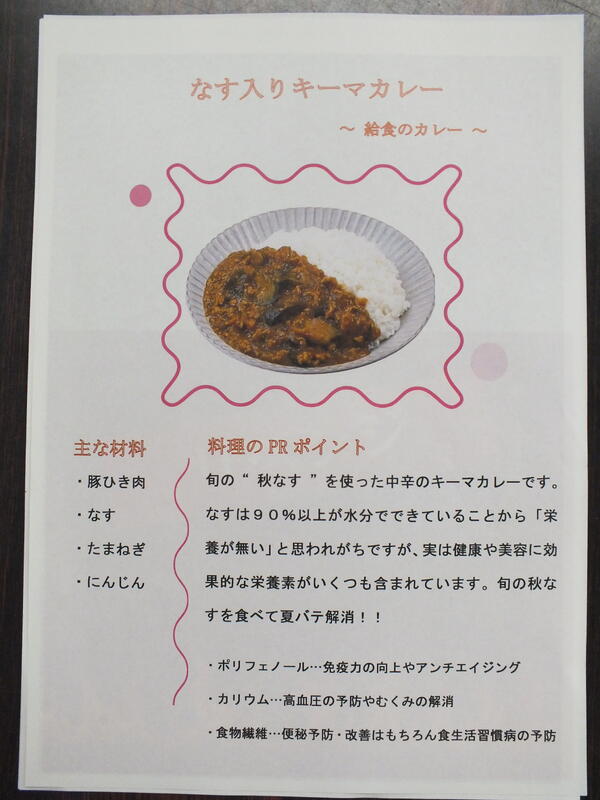 なす入りキーマカレー
～ 給食のカレー ～
主な材料
・豚ひき肉
・なす
・たまねぎ
・にんじん
料理のPRポイント
旬の“ 秋なす ”を使った中辛のキーマカレーです。
なすは９０％以上が水分でできていることから「栄
養が無い」と思われがちですが、実は健康や美容に効
果的な栄養素がいくつも含まれています。旬の秋な
すを食べて夏バテ解消！！
・ポリフェノール…免疫力の向上やアンチエイジング
・カリウム…高血圧の予防やむくみの解消
・食物繊維…便秘予防・改善はもちろん食生活習慣病の予防